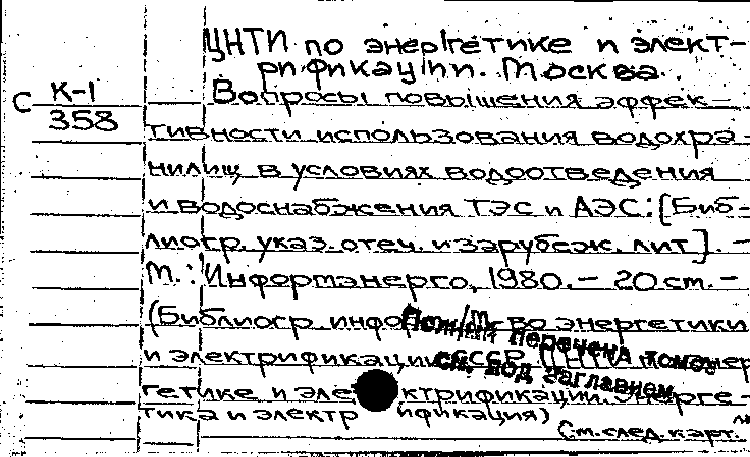 ЦНТИ по энергетике и элект-
рификации. Москва.
С К-1
358
Вопросы повышения эффек-
тивности использования водохра-
нилищ в условиях водоотведения
и водоснабжения ТЭС и АЭС: [Биб-
лиогр. указ. отеч. и зарубеж. лит]. -
М.: Информэнерго, 1980. - 20 см. -
(Библиогр. информ. / М-во энергетики
и электрификации СССР, ЦНТИ по энер
гетике и электрификации. Энерге-
тика и электрификация)
Полный перечень томов
см. под заглавием
См. след. карт.